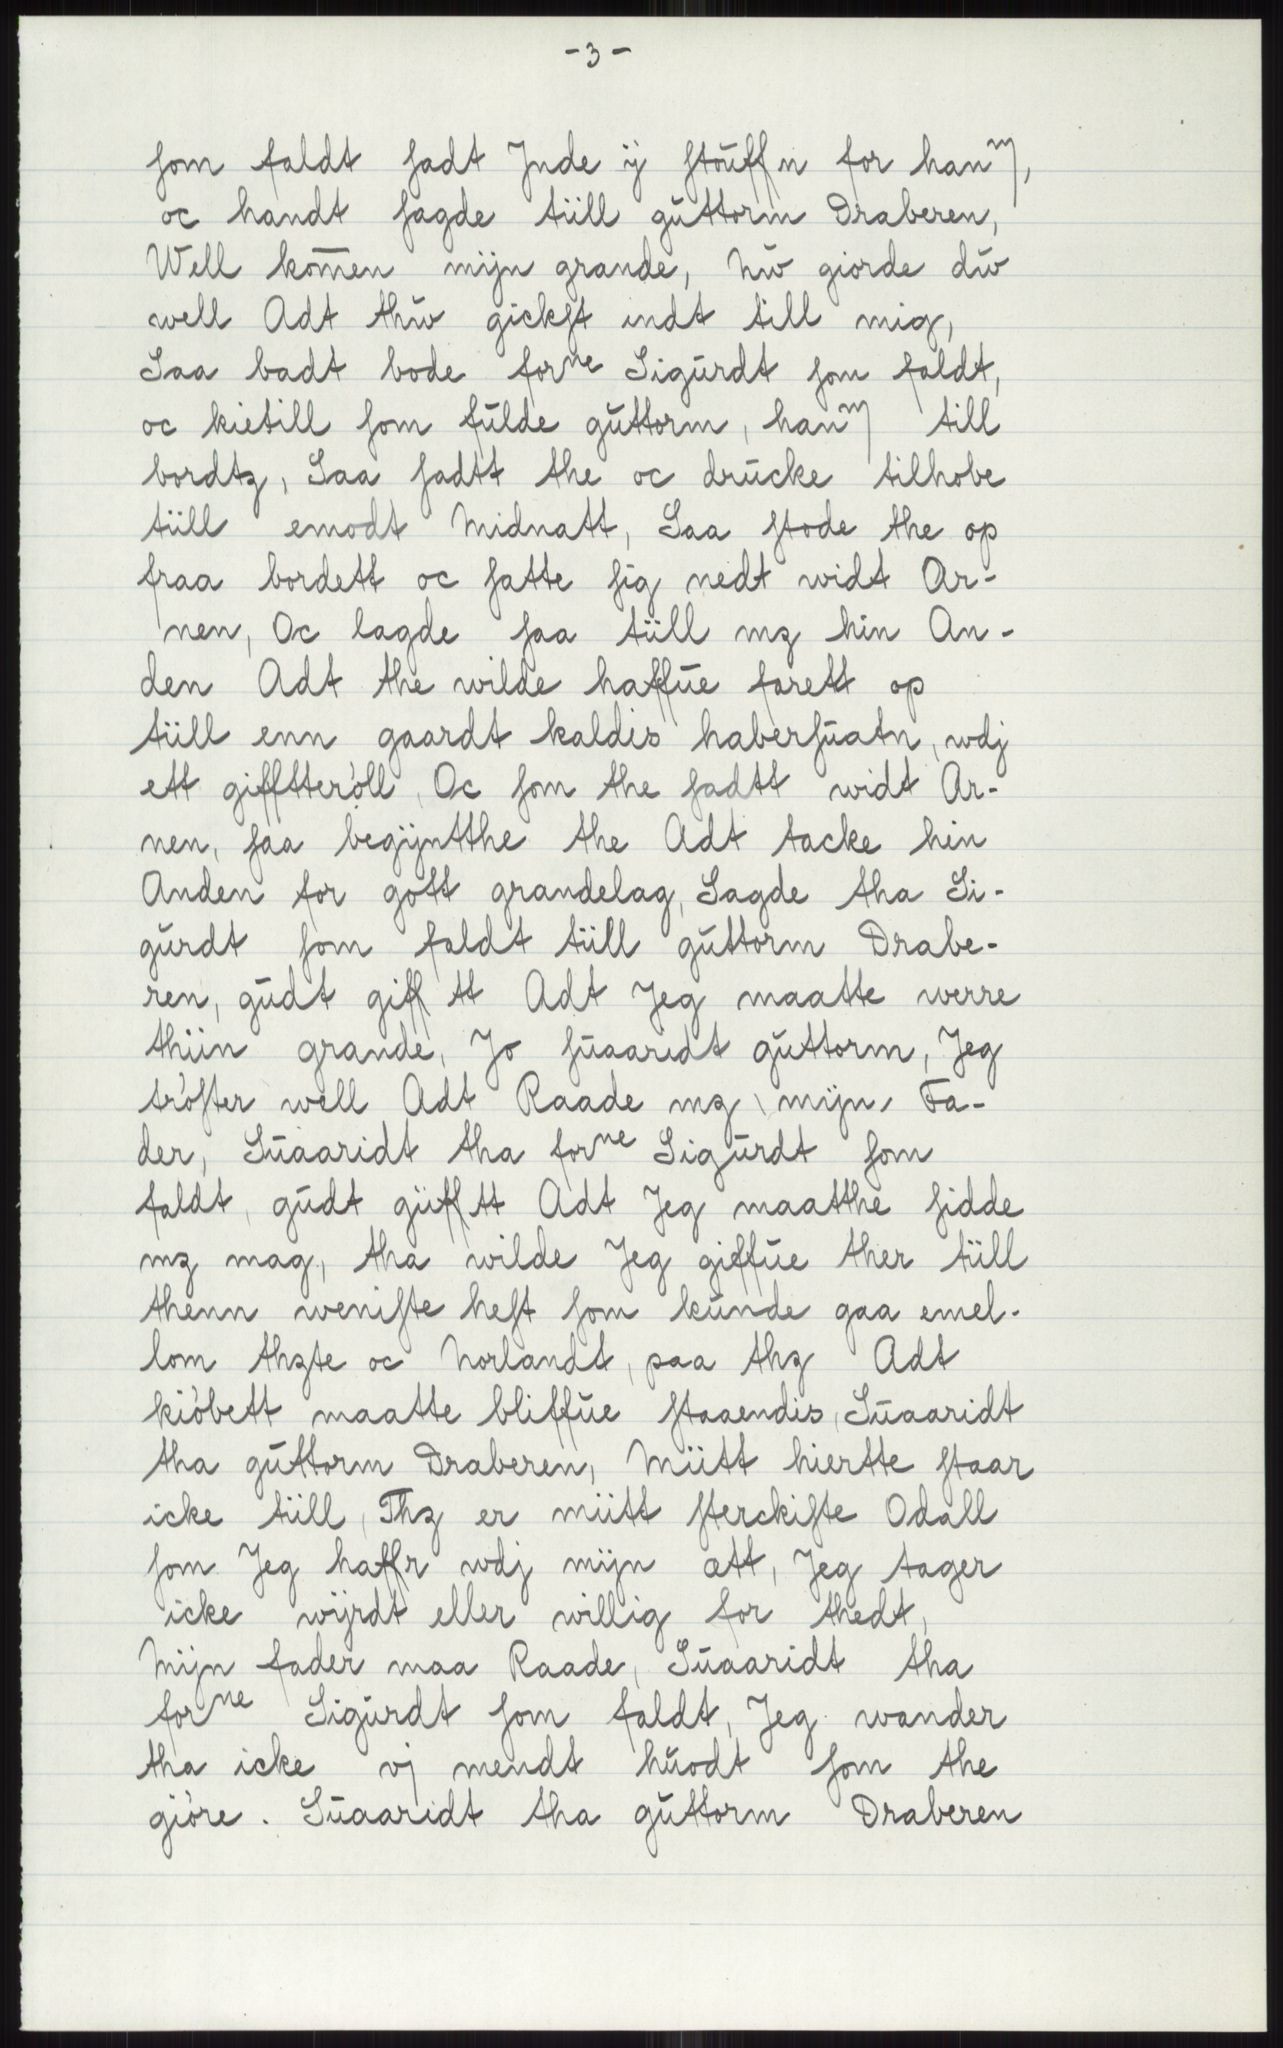 -3-
ſom faldt ſadt Jnde ÿ ſtoūffn for hanm,
oc handt ſagde tiill gūttorm Draberen,
Well kom̄en mijn grande, Nw̄ giorde dw̄
well Adt thw̄ gickſt indt till mig,
Saa badt bode forne Sigūrdt ſom faldt,
oc kietill ſom fūlde gūttorm, hanm till
bordtz, Saa ſadtt the oc drūcke tilhobe
tiill emodt Midnatt, Saa ſtode the op
fraa bordett oc ſatte ſig nedt widt Ar-
nen, Oc lagde ſaa tiill mz hin An-
den Adt the wilde haffūe farett op
tiill enn gaardt kaldis haberſūatn, wdj
ett gifftterόll, Oc ſom the ſadtt widt Ar-
nen, ſaa begijntthe the Adt tacke hin
Anden for gott grandelag, Sagde tha Si-
gūrdt ſom faldt tiill gūttorm Drabe-
ren, gūdt giff tt Adt Jeg maatte werre
thiin grande, Jo ſūaaridt gūttorm, Jeg
trόſter well Adt Raade mz mijn Fa-
der, Sūaaridt tha forne Sigūrdt ſom
faldt, gūdt giiff tt Adt Jeg maatthe ſidde
mz mag, tha wilde Jeg giffūe ther tiill
thenn weniſte heſt ſom kūnde gaa emel-
lom thzte oc Norlandt, paa thz Adt
kiόbett maatte bliffūe ſtaaendis, Sūaaridt
tha gūttorm Draberen, Miitt hiertte ſtaar
icke tiill, Thz er miitt ſterckiſte Odall
ſom Jeg haffr wdj mijn ætt, Jeg tager
icke wijrdt eller willig for thedt,
Mijn fader maa Raade, Sūaaridt tha
forne Sigūrdt ſom faldt, Jeg wander
tha icke vj mendt hūodt ſom the
giόre. Sūaaridt tha gūttorm Draberen